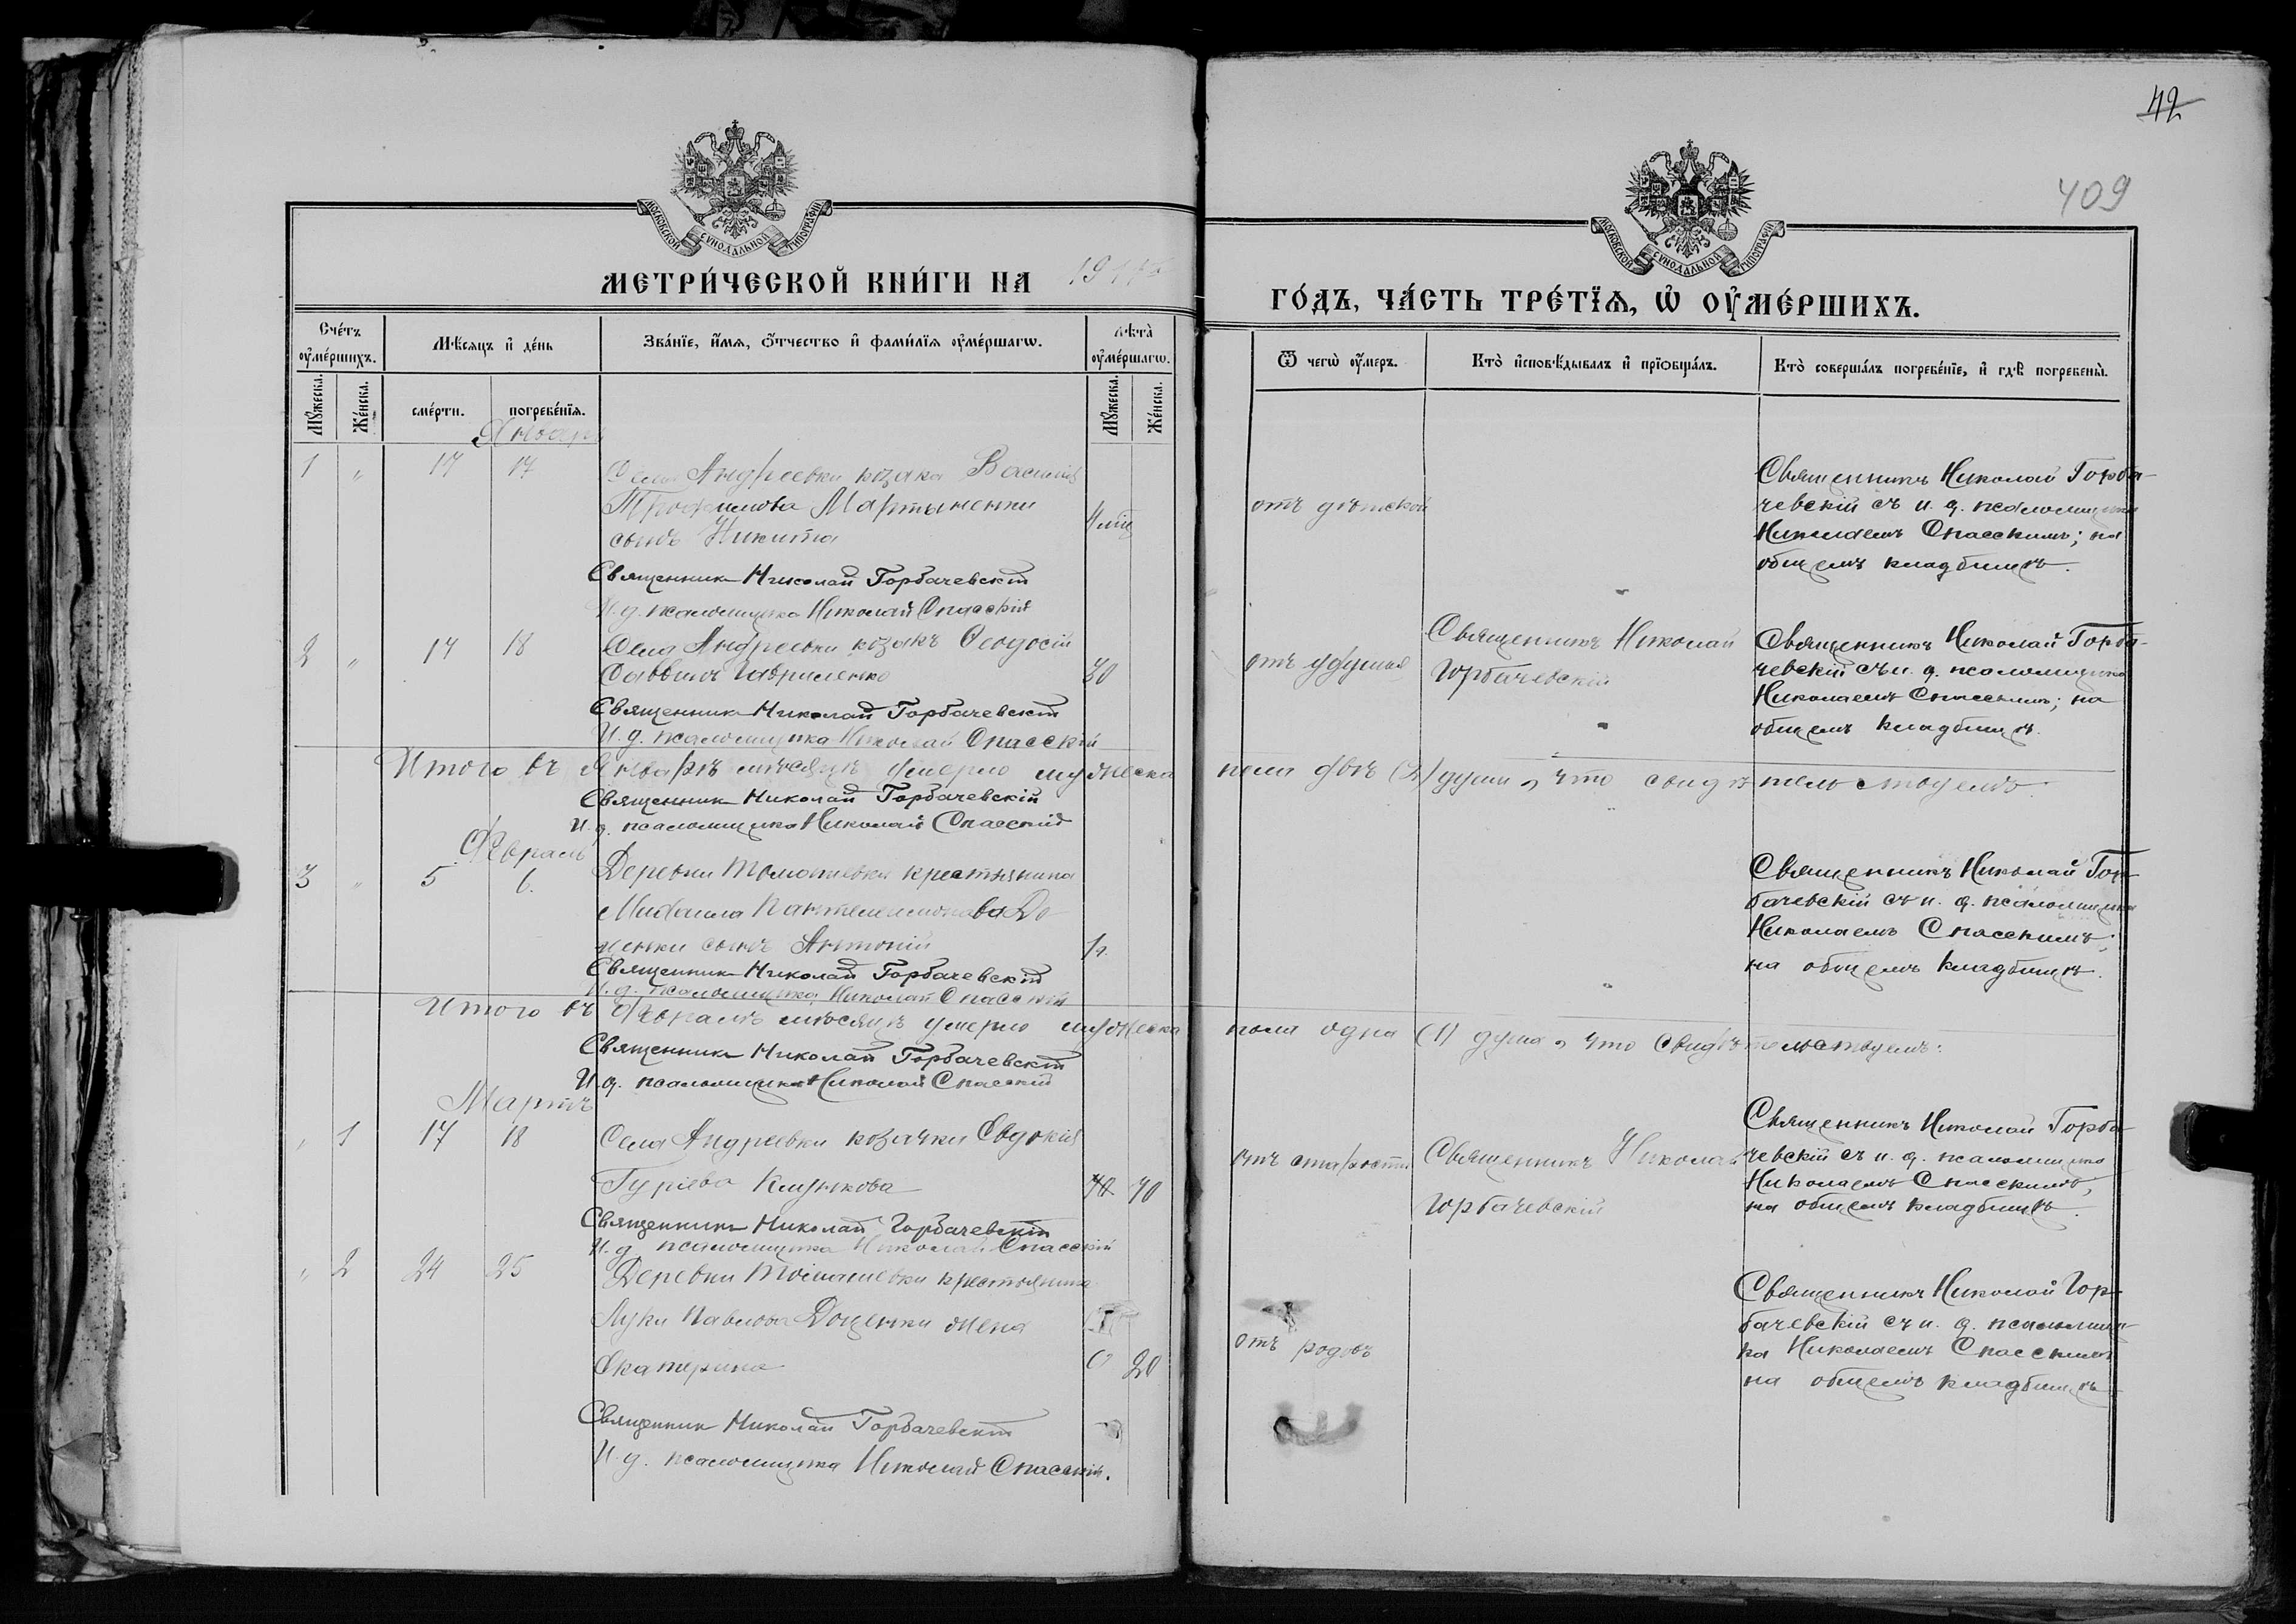 42
409
МОСКОВСКОЙ СѴНОДАЛЬНОЙ ТИПОГРАФІИ
МОСКОВСКОЙ СѴНОДАЛЬНОЙ ТИПОГРАФІИ
МЕТРИ́ЧЕСКОЙ КНИ́ГИ НА
ГО́ДЪ, ЧА́СТЬ ТРЕ́ТЇѦ, Ѡ҆ ОУ҆МЕ́РШИХЪ.
Сче́тъ оу҆ме́ршихъ.
Мѣ́сѧцъ и҆ де́нь
Зва́нїе, и҆́мѧ, ѻ҆́тчество и҆ фами́лїѧ оу҆ме́ршагѡ.
Лѣта̀ оу҆ме́ршагѡ.
Ѿ чегѡ̀ оу҆́меръ.
Кто̀ и҆сповѣ́дывалъ и҆ прїѻбща́лъ.
Кто̀ соверша́лъ погребе́нїе, и҆ гдѣ̀ погребены̀.
Мꙋ́жеска.
Же́нска.
сме́рти.
погребе́нїѧ.
Мꙋ́жеска.
Же́нска.
Январь
1 " 17 17
Села Андреевки козака Василія
Трофимова Мартыненки
сынъ Никита
отъ дѣтской
Священникъ Николай Горба-
чевскій съ и. д. псаломщика
Николаемъ Спасскимъ; на
общемъ кладбищѣ.
Священникъ Николай Горбачевскій
И. д. псаломщика Николай Спасскій
2 " 17 18
Села Андреевки козакъ Ѳеодосій
Саввинъ Гавриленко
70
отъ удушья
Священникъ Николай
Горбачевскій
Священникъ Николай Горба-
чевскій съ и. д. псаломщика
Николаемъ Спасскимъ; на
общемъ кладбищѣ.
Священникъ Николай Горбачевскій
И. д. псаломщика Николай Спасскій
Итого въ Январѣ мѣсяцѣ умерло мужеска пола двѣ (2) души, что свидѣтельствуемъ:
Священникъ Николай Горбачевскій
И. д. псаломщика Николай Спасскій
Февраль
3 " 5 6.
Деревни крестьянина
Михаила Пантелеимонова До-
ценки сынъ Антоній
Священникъ Николай Гор-
бачевскій съ и. д. псаломщика
Николаемъ Спасскимъ;
на общемъ кладбищѣ.
Священникъ Николай Горбачевскій
И. д. псаломщика Николай Спасскій
Итого въ Февралѣ мѣсяцѣ умерло мужеска пола одна (1) душа, что свидѣтельствуемъ:
Священникъ Николай Горбачевскій
И. д. псаломщика Николай Спасскій
Мартъ
" 1 17 18
Села Андреевки козачка Евдокія
Гуріева Клункова
70 70
отъ старости
Священникъ Николай
Горбачевскій
Священникъ Николай Горба-
чевскій съ и. д. псаломщика
Николаемъ Спасскимъ,
на общемъ кладбищѣ.
Священникъ Николай Горбачевскій
И. д. псаломщика Николай Спасскій
" 2 24 25
Деревни крестьянина
Луки Павлова Доценки жена
Екатерина
20
отъ родовъ
Священникъ Николай Гор-
бачевскій съ и. д. псаломщи-
ка Николаемъ Спасскимъ
на общемъ кладбищѣ
Священникъ Николай Горбачевскій
И. д. псаломщика Николай Спасскій.